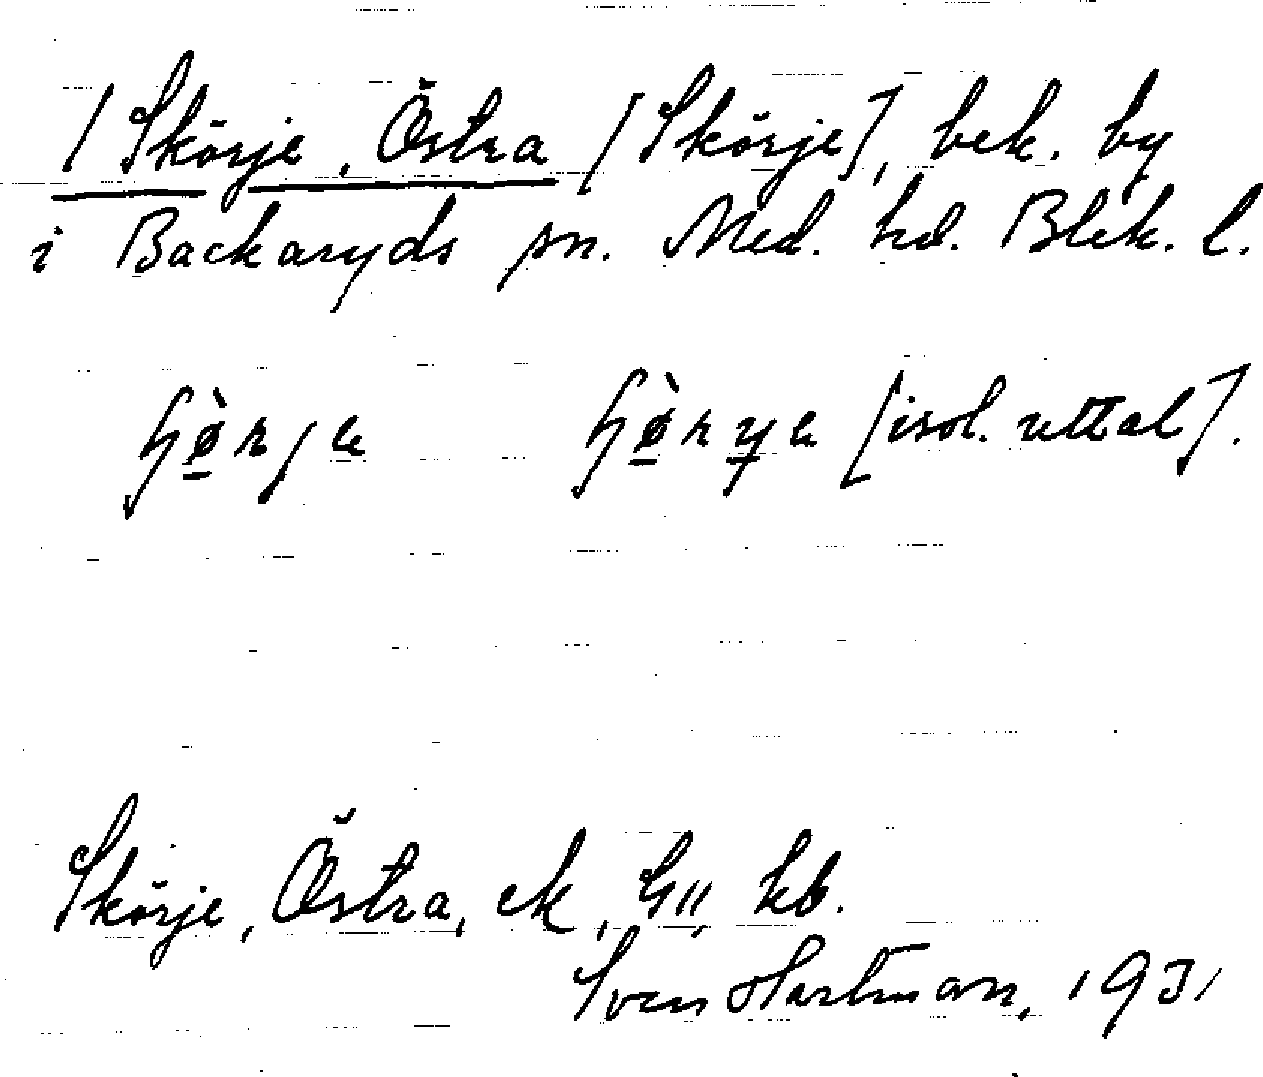 / Skörje, Östra [Skörje], bek. by
i Backaryds sn. Med. hd. Blek. l.
[isol. uttal].
Skörje, Östra, ek, kb.
Sven Hartman, 1931